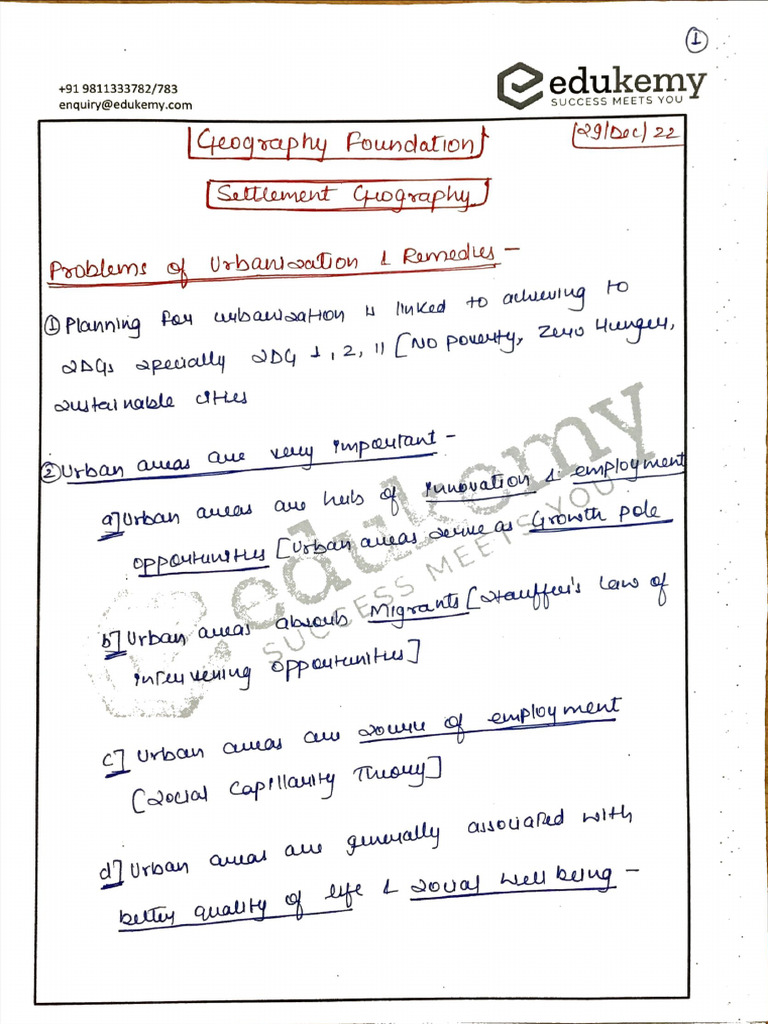 ①
+91 9811333782/783
enquiry@edukemy.com
edukemy
SUCCESS MEETS YOU
Geography Foundation
29/Dec/22
Settlement Geography
Problems of Urbanization & Remedies -
① Planning for urbanization is linked to achieving to
SDGs specially SDG 1, 2, 11 [No poverty, Zero Hunger,
sustainable cities
② Urban areas are very important -
a] Urban areas are hub of innovation & employment
opportunities [Urban areas serve as Growth pole
b] Urban areas absorb Migrants [Stauffer's law of
intervening opportunities]
c] Urban areas are source of employment
[Social Capillarity Theory]
d] Urban areas are generally associated with
better quality of life & social well being -
edukemy
SUCCESS MEETS YOU